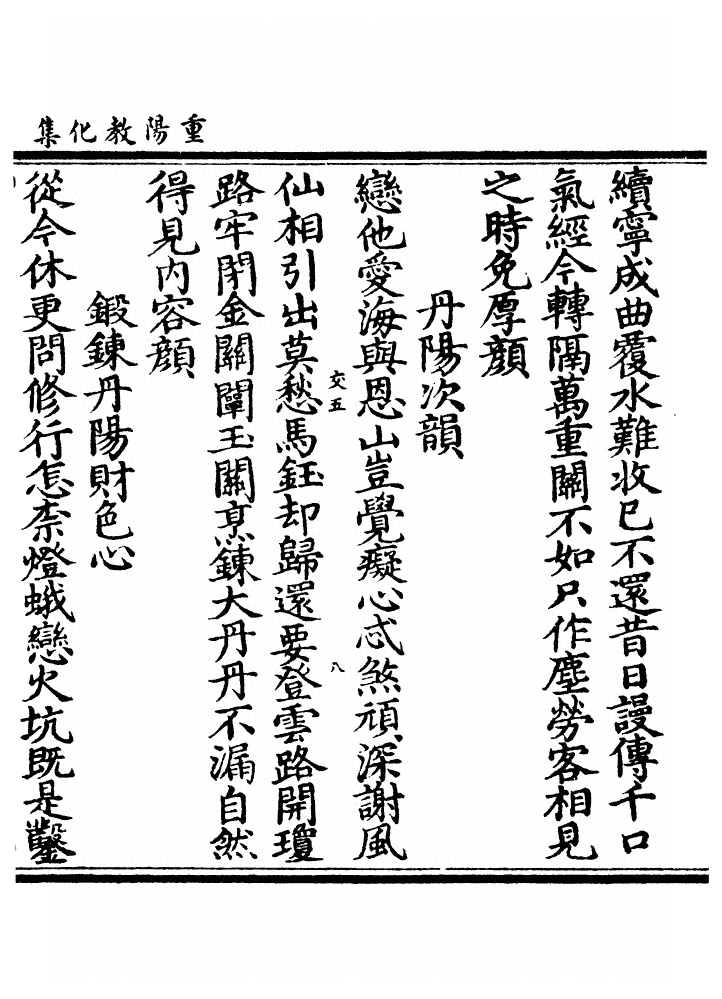 重陽教化集
續寧成曲覆水難收已不還昔日謾傳千口
氣經今轉隔萬重關不如只作塵勞客相見
之時免厚顔
丹陽次韻
戀他愛海與恩山豈覺癡心忒煞頑深謝風
交五
八
仙相引出莫愁馬鈺却歸還要登雲路開瓊
路牢閉金關闡玉關烹鍊大丹丹不漏自然
得見内容顔
鍛鍊丹陽財色心
從今休更問修行怎柰燈蛾戀火坑既是鑿